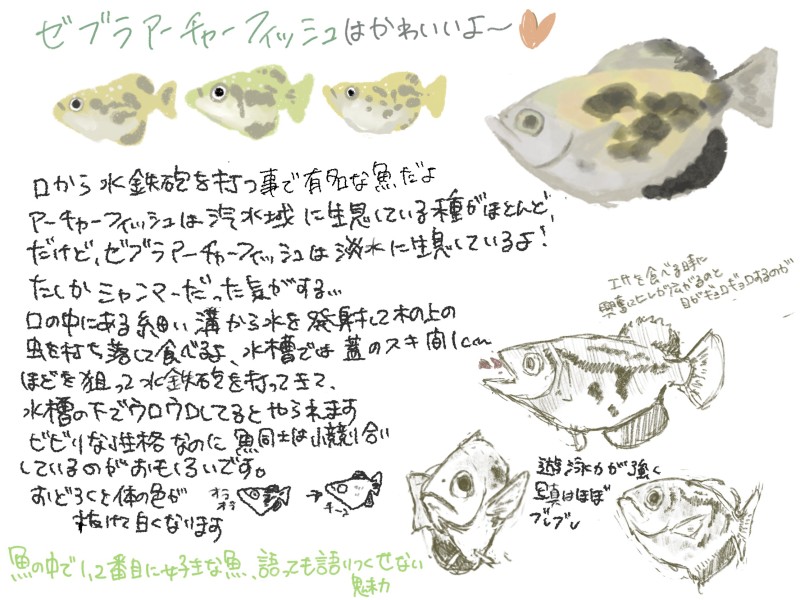 ゼブラアーチャーフィッシュはかわいいよ〜
口から水鉄砲を打つ事で有名な魚だよ
アーチャーフィッシュは汽水域に生息している種がほとんど、
だけど、ゼブラアーチャーフィッシュは淡水に生息しているよ!
たしかミャンマーだった気がする...
口の中にある細い溝から水を発射して木の上の
虫を打ち落して食べるよ、水槽では蓋のスキ間1cm
ほどを狙って水鉄砲を打ってきて、
水槽の下でウロウロしてるとやられます
ビビリな性格なのに魚同士は小競り合い
しているのがおもしろいです。
おどろくと体の色が
抜けて白くなります
エサを食べる時に
興奮してヒレが広がるのと
目がギョロギョロするのが
遊泳力が強く
写真はほぼ
ブレブレ
魚の中で1,2番目に好きな魚、語っても語りつくせない
魅力